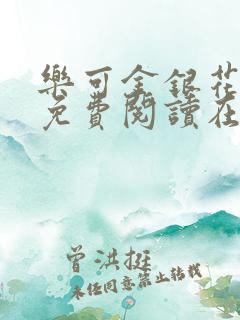 樂可金銀花
免費閱讀在
曾洪挺
未經同意禁止轉載